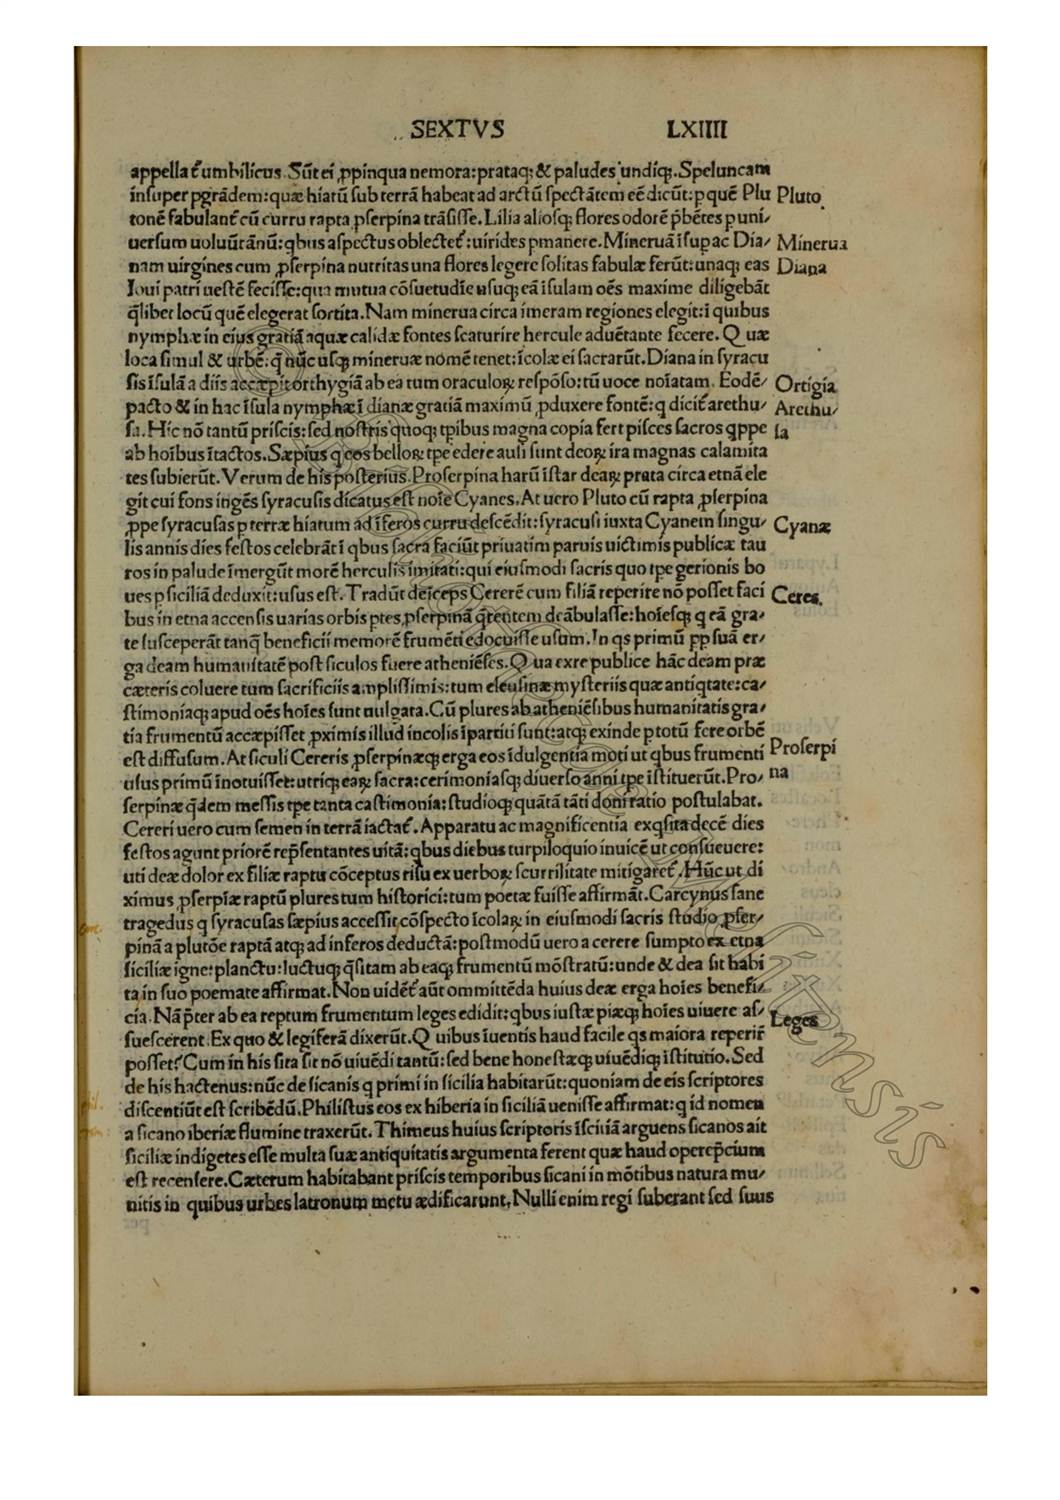 SEXTVS LXIIII
appellat̃ umbilicus. Sũt ei ꝓpinqua nemora: prataq; & paludes undiq;. Speluncam
insuper pgrãdem: quæ hiatũ sub terrã habeat ad arctũ spectãtem eẽ dicũt: p quẽ Plu
Pluto
tonẽ fabulant̃ cũ curru rapta ꝓserpina trãsisse. Lilia aliosq; flores odorẽ p̃bẽtes p uni/
uersum uoluũt ãnũ: qbus aspectus oblectet̃: uirides pmanere. Mineruã ĩsup ac Dia/
Minerua
nam uirgines cum ꝓserpina nutritas una flores legere solitas fabulæ ferũt: unaq; eas
Diana
Ioui patri uestẽ fecisse: qua mutua cõsuetudĩe usuq; eã ĩsulam oẽs maxime diligebãt
q̃libet locũ quẽ elegerat sortita. Nam minerua circa imeram regiones elegit: ĩ quibus
nymphæ in eius gratiã aquæ calidæ fontes scaturire hercule aduẽtante fecere. Quæ
loca simul & urbẽ: q̃ nũc usq; mineruæ nomẽ tenet: ĩcolæ ei sacrarũt. Diana in syracu
sis ĩsulã a diis accæpit orthygiã ab ea tum oraculoꝝ respõso: tũ uoce noĩatam. Eodẽ/
Ortigia
pacto & in hac ĩsula nymphæ ĩ dianæ gratiã maximũ ꝓduxere fontẽ: q dicit̃ arethu/
Arethu/
sa. Hic nõ tantũ priscis: sed nostris quoq; tpibus magna copia fert pisces sacros qppe
sa
ab hoĩbus ĩtactos. Sæpius q eos belloꝝ tpe edere ausi sunt deoꝝ ira magnas calamita
tes subierũt. Verum de his posterius. Proserpina harũ ĩstar deaꝝ prata circa etnã ele
git cui fons ingẽs syracusis dicatus est noĩe Cyanes. At uero Pluto cũ rapta ꝓserpina
ꝓpe syracusas p terræ hiatum ad ĩferos curru descẽdit: syracusi iuxta Cyanem singu/
Cyanæ
lis annis dies festos celebrãt ĩ qbus sacra faciũt priuatim paruis uictimis publicæ tau
ros in palude ĩmergũt morẽ herculis imitati: qui eiusmodi sacris quo tpe gerionis bo
ues p siciliã deduxit: usus est. Tradũt deĩceps Cererẽ cum filiã reperire nõ posset faci
Ceres.
bus in etna accensis uarias orbis ptes ꝓserpinã q̃rentem deãbulasse: hoĩesq; q eã gra/
te susceperãt tanq̃ beneficii memorẽ frumẽti edocuisse usum. In qs primũ ꝓp suã er/
ga deam humanitatẽ post siculos fuere atheniẽses. Qua ex re publice hãc deam præ
cæteris coluere tum sacrificiis amplissimis: tum eleusinæ mysteriis quæ antiqtate: ca/
stimoniaq; apud oẽs hoĩes sunt uulgata. Cũ plures ab atheniẽsibus humanitatis gra/
tia frumentũ accæpisset ꝓximis illud incolis ĩpartiti sunt: atq; exinde p totũ fere orbẽ
est diffusum. At siculi Cereris ꝓserpinæq; erga eos ĩdulgentia moti ut qbus frumenti
Proserpi
usus primũ ĩnotuisset: utriq; eaꝝ sacra: cerimoniasq; diuerso anni tpe ĩstituerũt. Pro/
na
serpinæ q̃dem messis tpe tanta castimonia: studioq; quãtã tãti doni ratio postulabat.
Cereri uero cum semen in terrã iactat̃. Apparatu ac magnificentia exqsita decẽ dies
festos agunt priorẽ rep̃sentantes uitã: qbus diebus turpiloquio inuicẽ ut consueuere:
uti deæ dolor ex filiæ raptu cõceptus risu ex uerboꝝ scurrilitate mitigaret̃. Hũc ut di
ximus ꝓserpĩæ raptũ plures tum historici: tum poetæ fuisse affirmãt. Carcynus sane
tragedus q syracusas sæpius accessit cõspecto ĩcolaꝝ in eiusmodi sacris studio ꝓser/
pinã a plutõe raptã atq; ad inferos deductã: postmodũ uero a cerere sumpto ex etna
siciliæ igne: planctu: luctuq; q̃sitam ab eaq; frumentũ mõstratũ: unde & dea sit habi
ta in suo poemate affirmat. Non uidẽt̃ aũt ommittẽda huius deæ erga hoĩes benefi/
cia. Nã p̃ter ab ea reptum frumentum leges edidit: qbus iustæ piæq; hoĩes uiuere as/
Leges
suescerent. Ex quo & legiferã dixerũt. Quibus ĩuentis haud facile qs maiora reperir̃
posset? Cum in his sita sit nõ uiuẽdi tantũ: sed bene honestæq; uiuẽdiq; ĩstitutio. Sed
de his hactenus: nũc de sicanis q primi in sicilia habitarũt: quoniam de eis scriptores
discentiũt est scribẽdũ. Philistus eos ex hiberia in siciliã uenisse affirmat: q id nomen
a sicano iberiæ flumine traxerũt. Thimeus huius scriptoris ĩscitiã arguens sicanos ait
siciliæ indigetes esse multa suæ antiquitatis argumenta ferent quæ haud operep̃cium
est recensere. Cæterum habitabant priscis temporibus sicani in mõtibus natura mu/
nitis in quibus urbes latronum metu ædificarunt, Nulli enim regi suberant sed suus